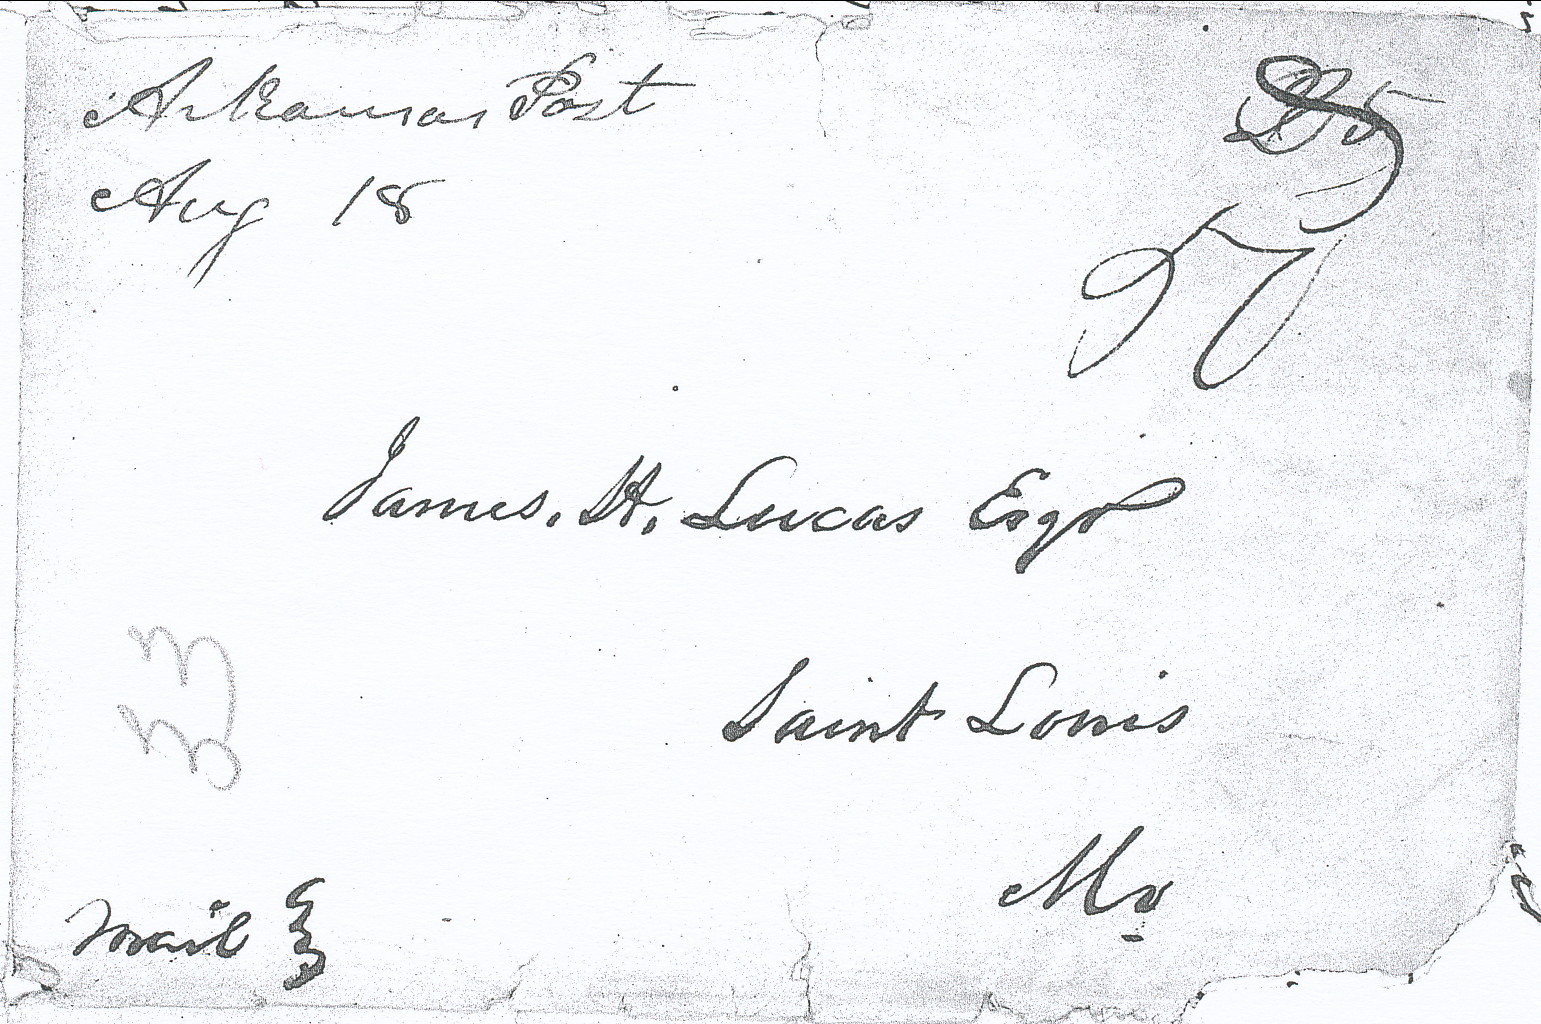 Arkansas Post
Aug 18
James. H. Lucas Esqr
Saint Louis
Mo
33
Mail